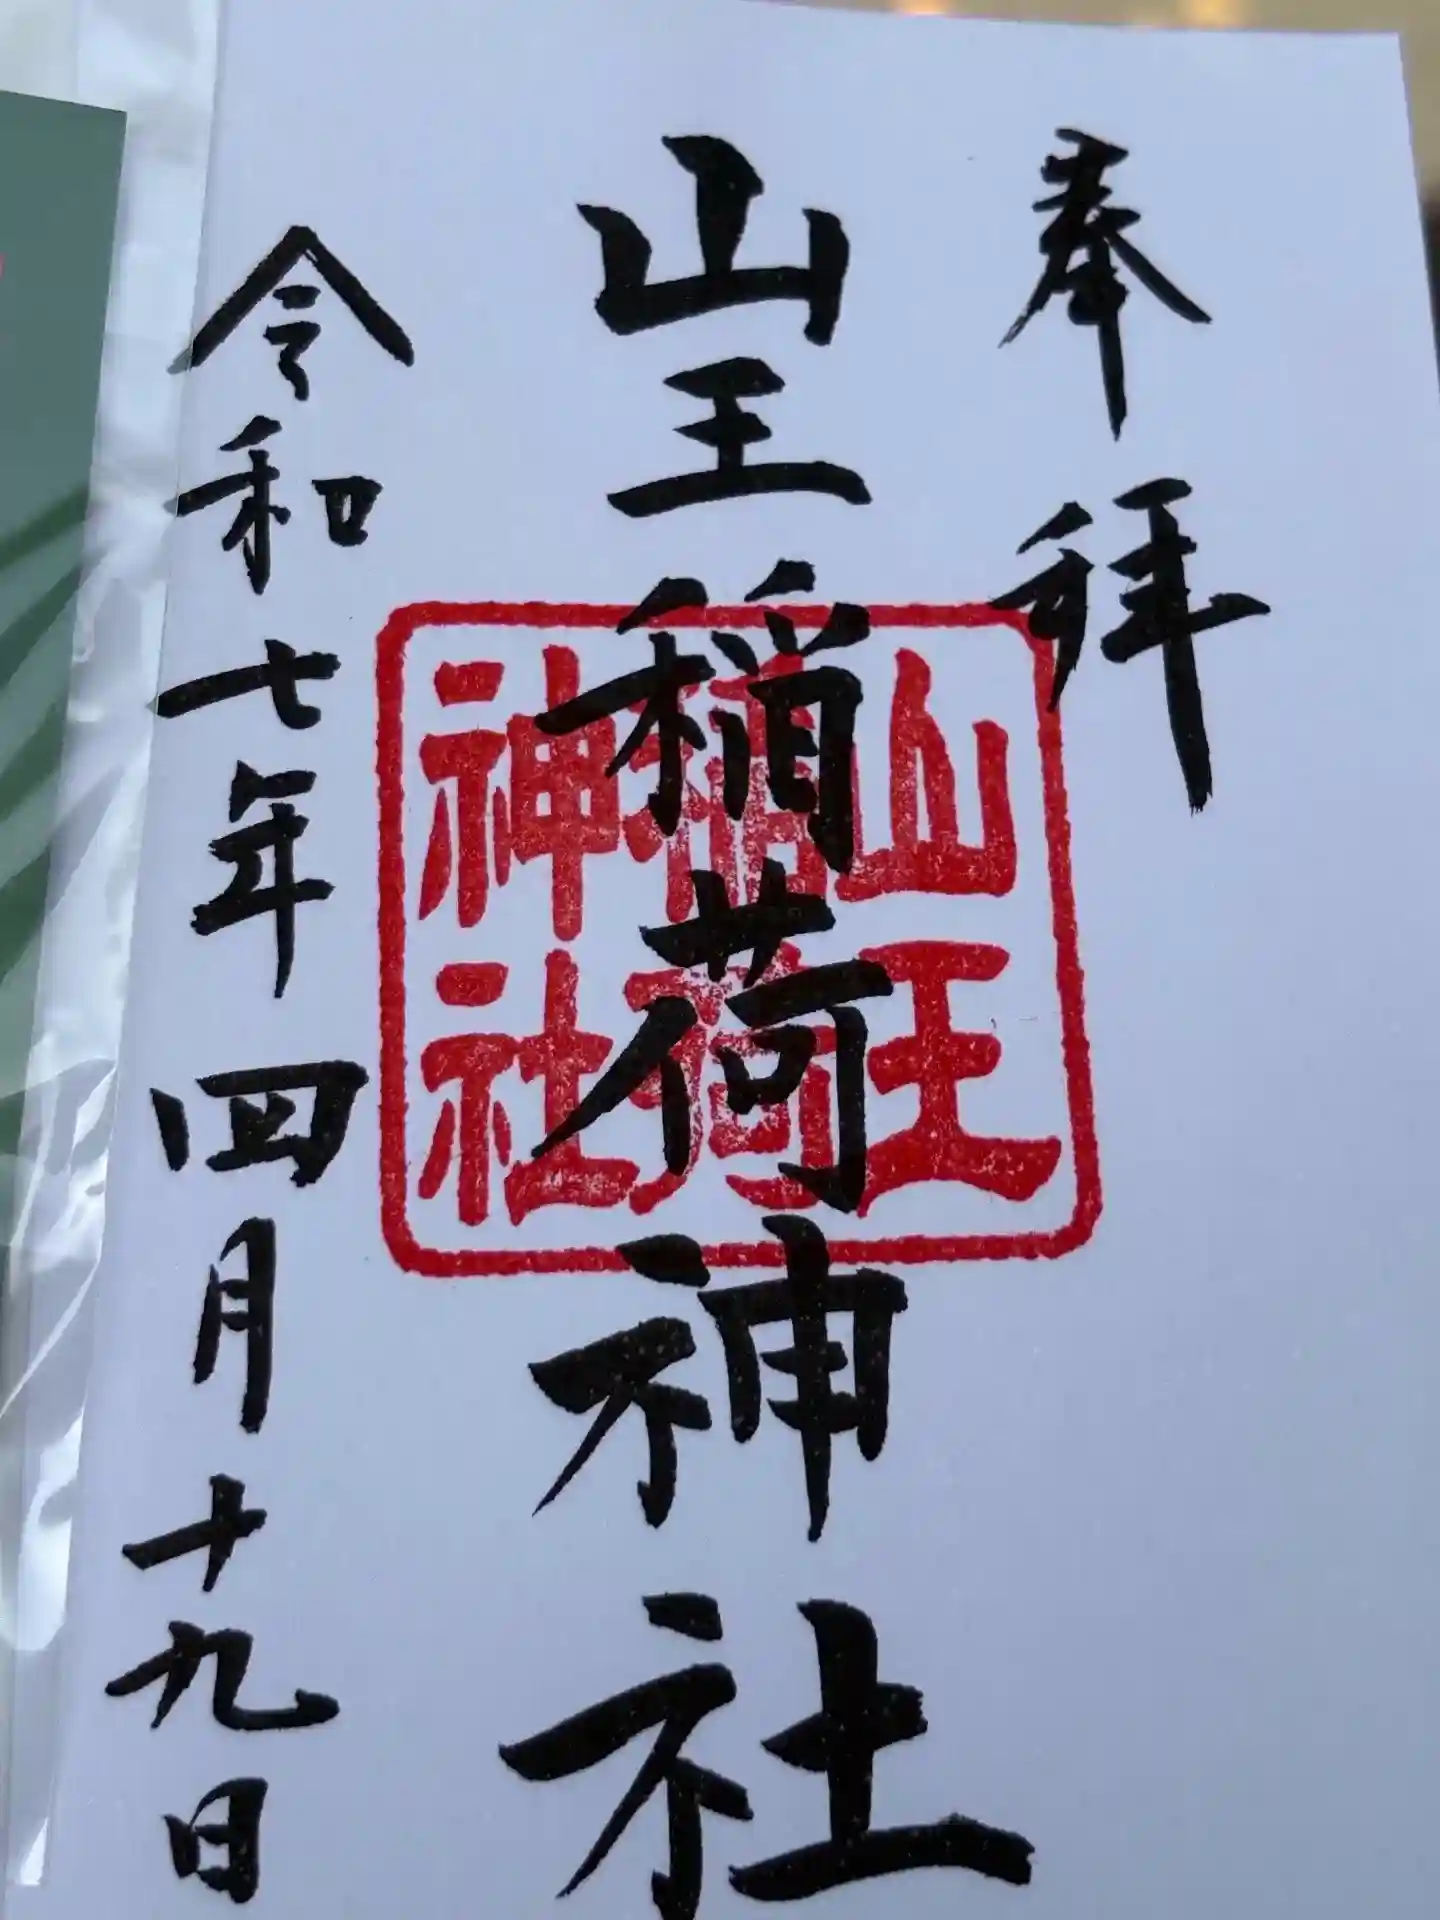 奉拝
山王稲荷神社
山王
稲荷
神社
令和七年四月十九日